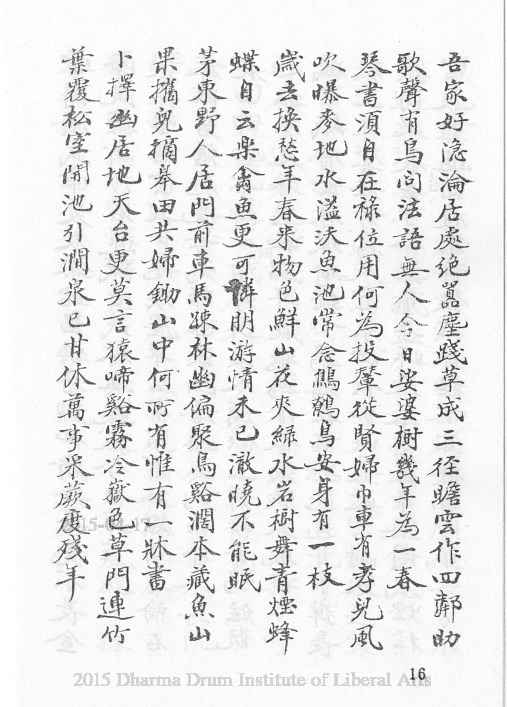 吾家好隐淪居處絶嚣塵踐草成三徑瞻雲作四鄰助
歌聲有鳥问法語無人今日娑婆樹幾年為一春
琴書須自在祿位用何為投輦從賢婦巾車有孝兒風
吹曝麥地水溢沃魚池常念鷦鷯鳥安身有一枝
歲去換愁年春来物色鮮山花夾緑水岩樹舞青煙蜂
蝶自云樂禽魚更可憐朋游情未已澈曉不能眠
茅東野人居門前車馬疎林幽偏聚鳥谿濶本藏魚山
果攜兒摘皋田共婦鋤山中何所有惟有一牀書
卜擇幽居地天台更莫言猿啼谿霧冷嶽色草門連竹
葉覆松室開池引澗泉已甘休萬事采蕨度殘年
16
2015 Dharma Drum Institute of Liberal Arts